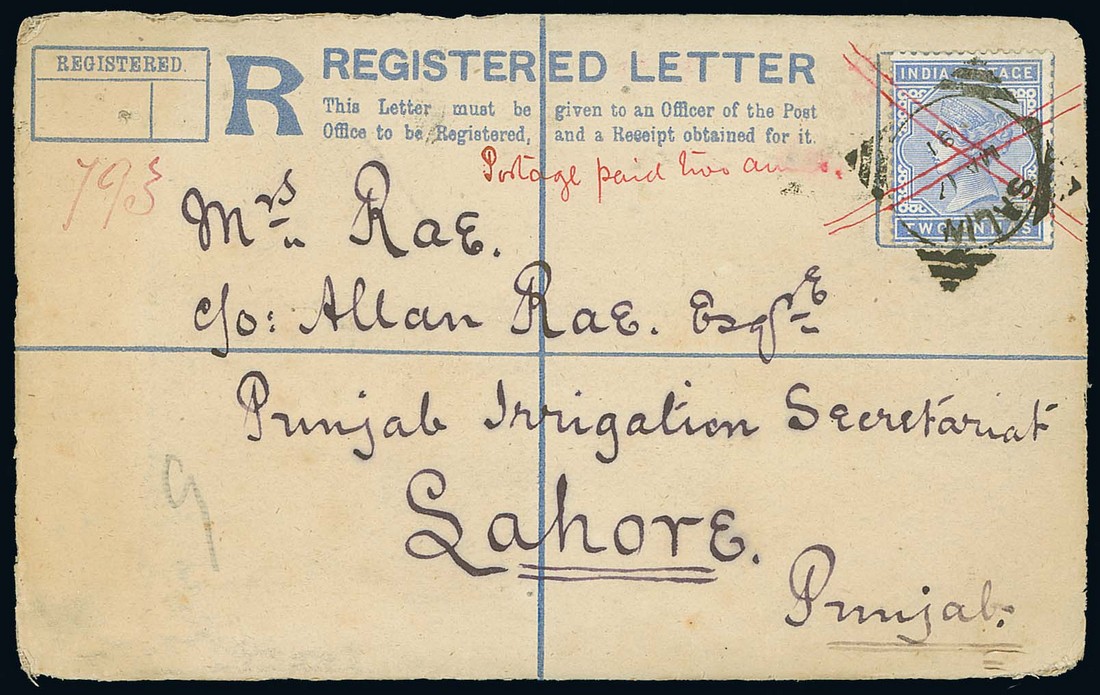 REGISTERED.
R
REGISTERED LETTER
This Letter must be given to an Officer of the Post
Office to be Registered, and a Receipt obtained for it.
Postage paid two
793
INDIA
TWO
91
SALIM
Mrs Rae.
c/o: Allan Rae. Esqre
Punjab Irrigation Secretariat
Lahore.
Punjab.
9